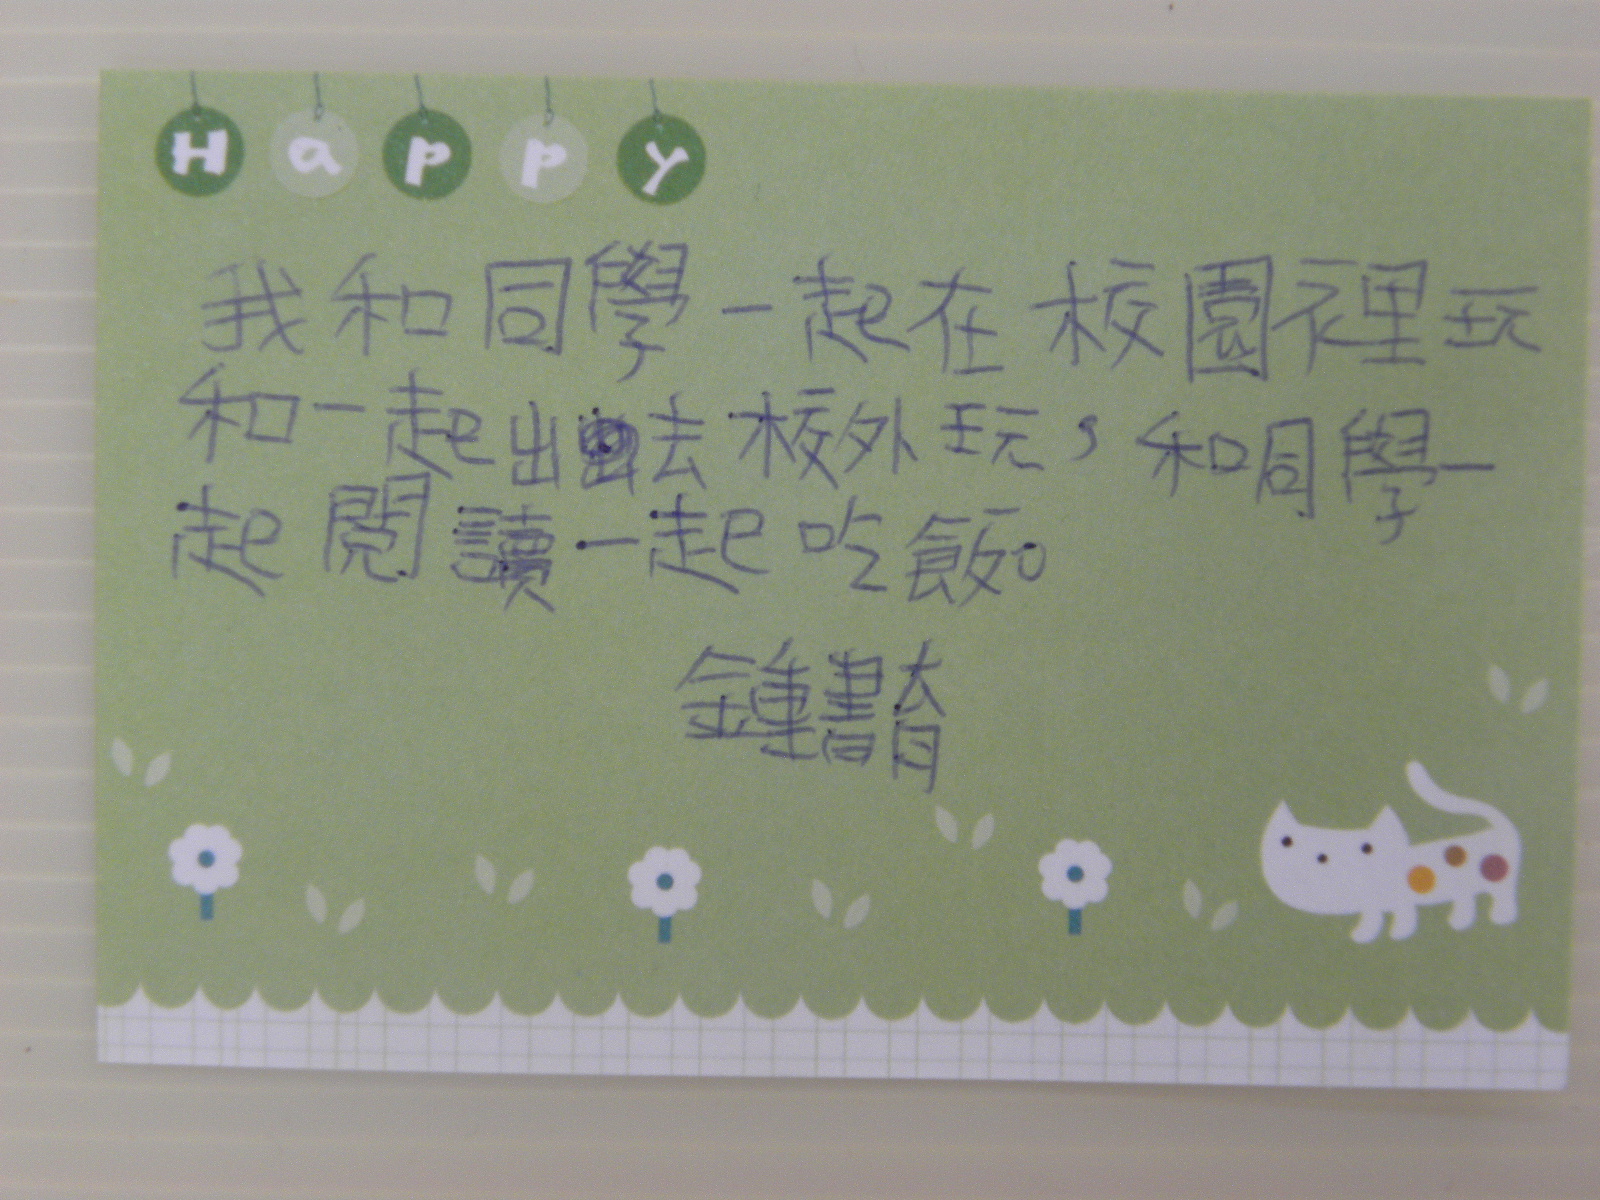 Happy
我和同學一起在校園裡玩
和一起出去校外玩，和同學一
起閱讀一起吃飯。
鍾書